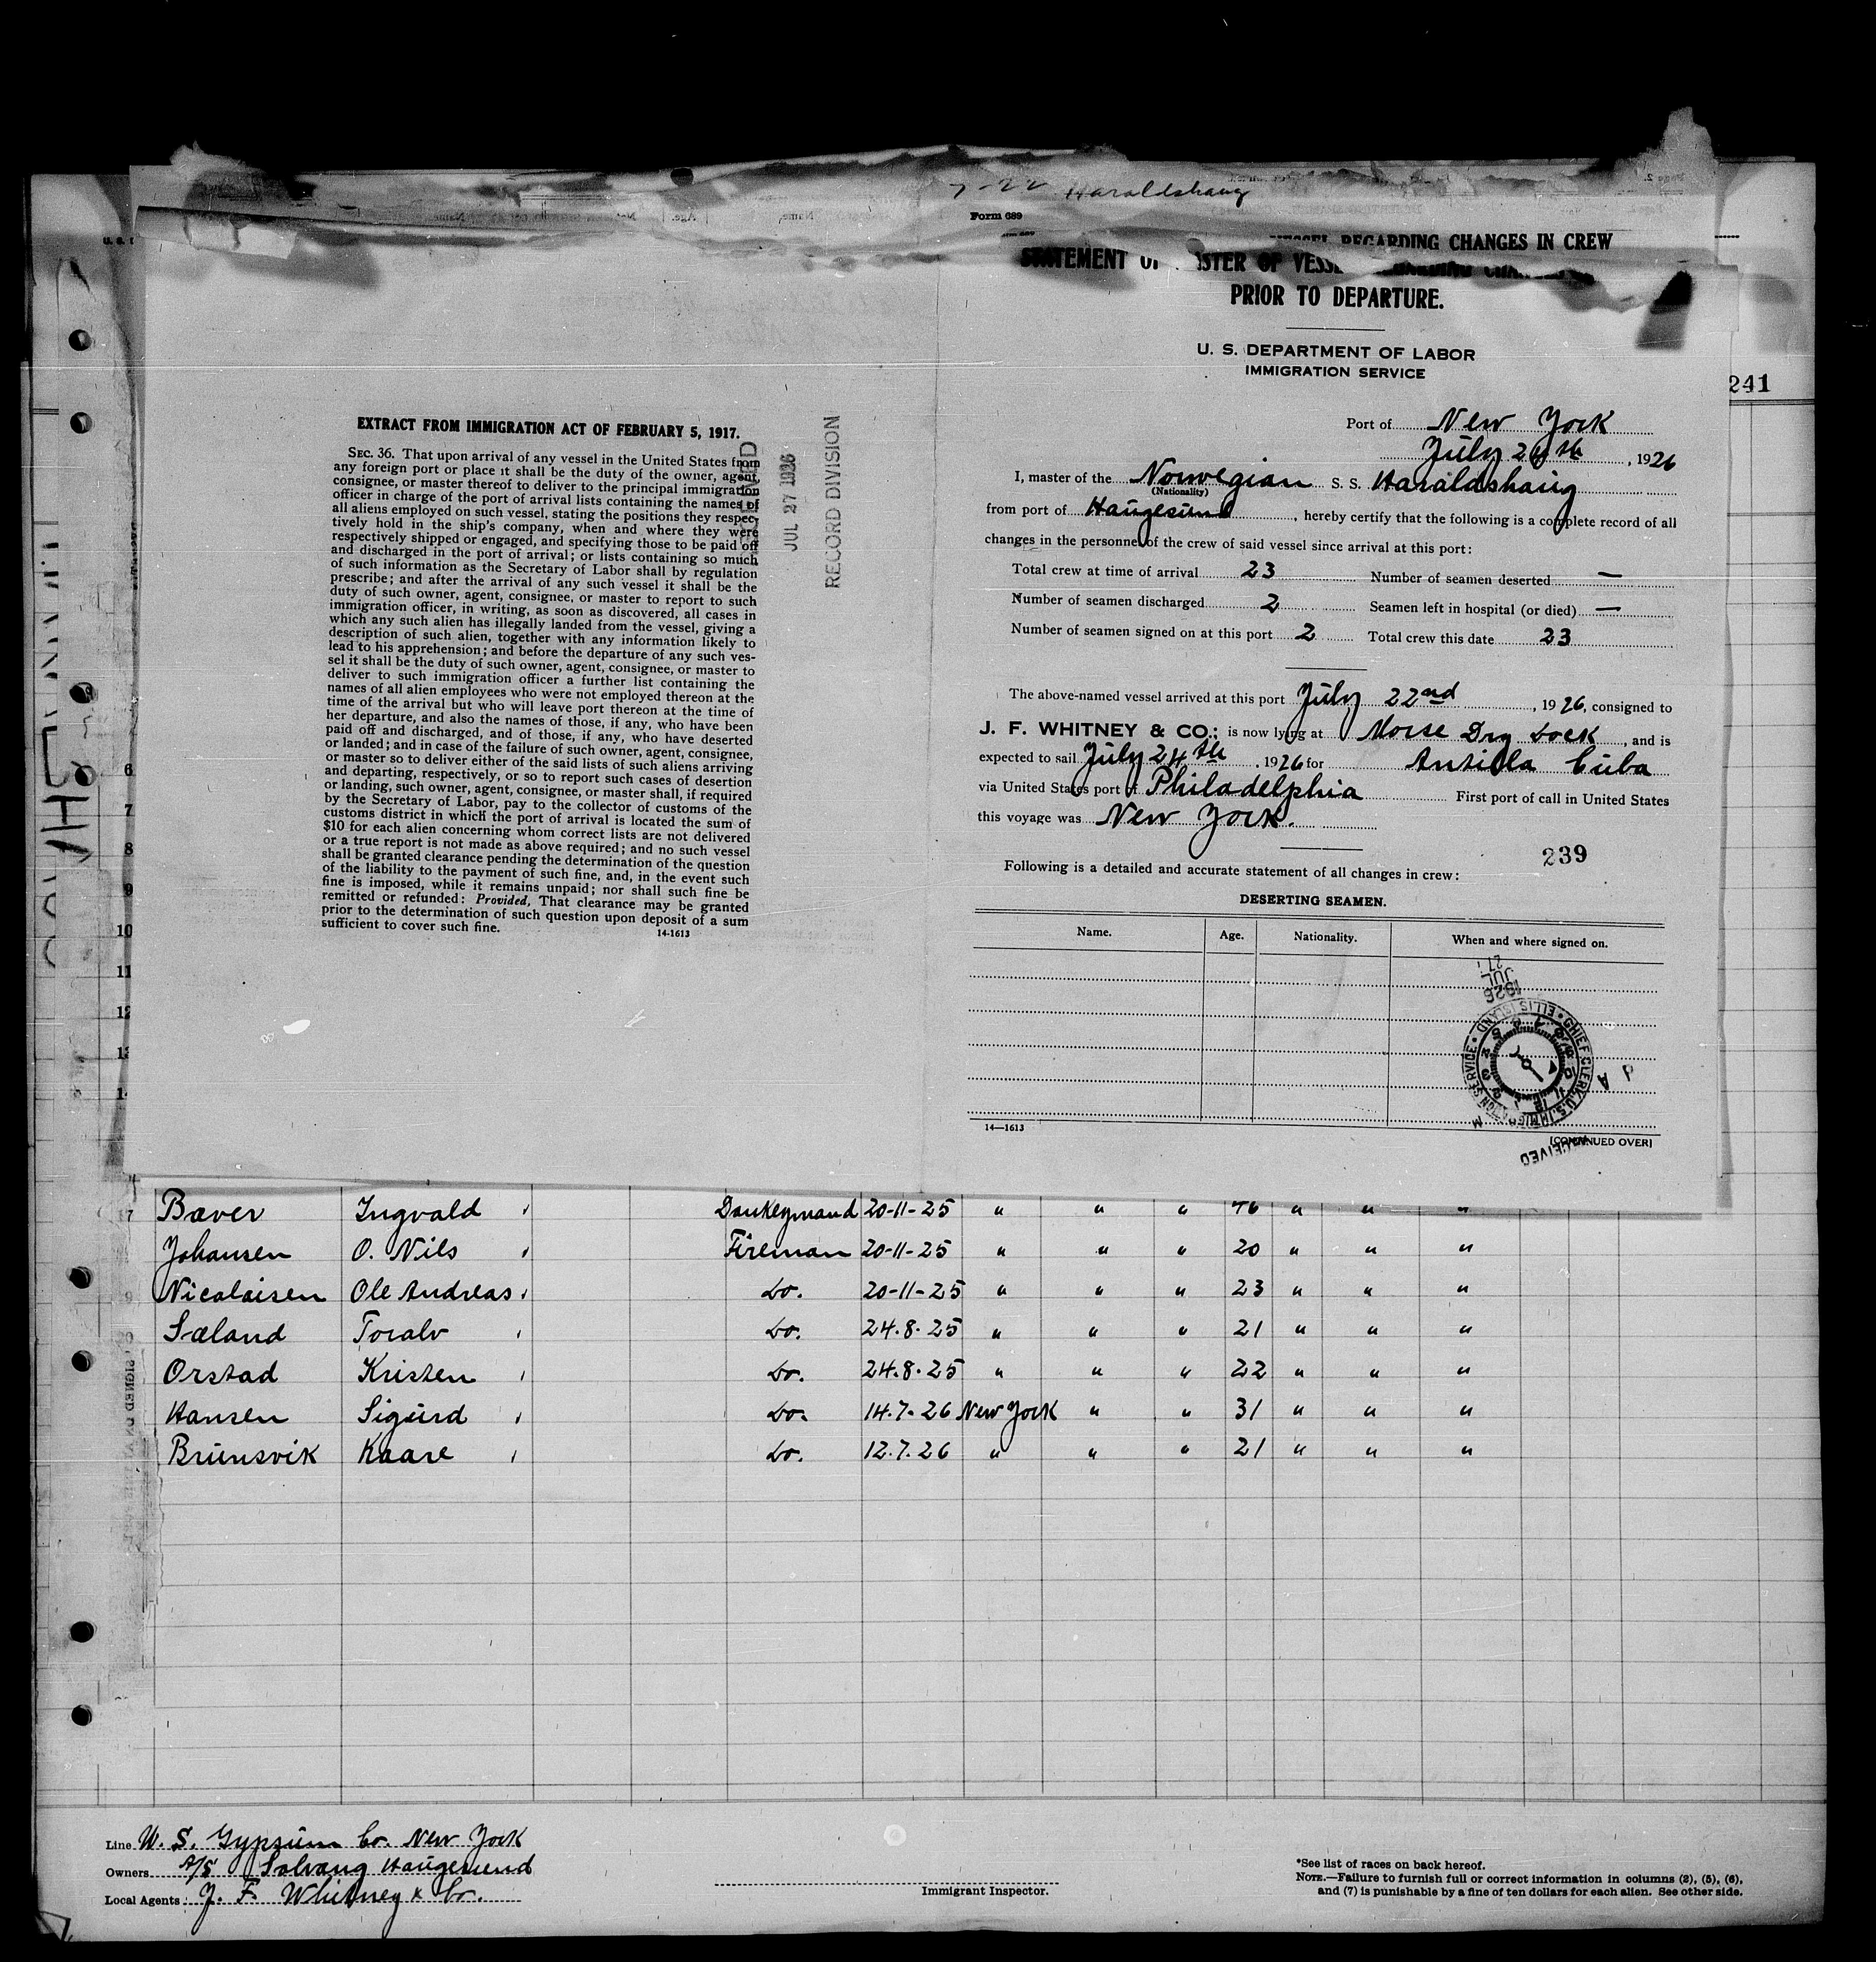 7-22 Haraldshaug
Form 689
VESSEL REGARDING CHANGES IN CREW
STATEMENT OF MASTER OF VESSEL
PRIOR TO DEPARTURE.
U. S. DEPARTMENT OF LABOR
IMMIGRATION SERVICE
241
EXTRACT FROM IMMIGRATION ACT OF FEBRUARY 5, 1917.
SEC. 36. That upon arrival of any vessel in the United States from
any foreign port or place it shall be the duty of the owner, agent,
consignee, or master thereof to deliver to the principal immigration
officer in charge of the port of arrival lists containing the names of
all aliens employed on such vessel, stating the positions they respec-
tively hold in the ship's company, when and where they were
respectively shipped or engaged, and specifying those to be paid off
and discharged in the port of arrival; or lists containing so much
of such information as the Secretary of Labor shall by regulation
prescribe; and after the arrival of any such vessel it shall be the
duty of such owner, agent, consignee, or master to report to such
immigration officer, in writing, as soon as discovered, all cases in
which any such alien has illegally landed from the vessel, giving a
description of such alien, together with any information likely to
lead to his apprehension; and before the departure of any such ves-
sel it shall be the duty of such owner, agent, consignee, or master to
deliver to such immigration officer a further list containing the
names of all alien employees who were not employed thereon at the
time of the arrival but who will leave port thereon at the time of
her departure, and also the names of those, if any, who have been
paid off and discharged, and of those, if any, who have deserted
or landed; and in case of the failure of such owner, agent, consignee,
or master so to deliver either of the said lists of such aliens arriving
and departing, respectively, or so to report such cases of desertion
or landing, such owner, agent, consignee, or master shall, if required
by the Secretary of Labor, pay to the collector of customs of the
customs district in which the port of arrival is located the sum of
$10 for each alien concerning whom correct lists are not delivered
or a true report is not made as above required; and no such vessel
shall be granted clearance pending the determination of the question
of the liability to the payment of such fine, and, in the event such
fine is imposed, while it remains unpaid; nor shall such fine be
remitted or refunded: Provided, That clearance may be granted
prior to the determination of such question upon deposit of a sum
sufficient to cover such fine.
14-1613
RECEIVED
JUL 27 1926
RECORD DIVISION
Port of New York
July 26th, 1926
I, master of the Norwegian S. S. Haraldshaug
(Nationality)
from port of Haugesund, hereby certify that the following is a complete record of all
changes in the personnel of the crew of said vessel since arrival at this port:
Total crew at time of arrival 23 Number of seamen deserted —
Number of seamen discharged 2 Seamen left in hospital (or died) —
Number of seamen signed on at this port 2 Total crew this date 23
The above-named vessel arrived at this port July 22nd, 1926, consigned to
J. F. WHITNEY & CO.; is now lying at Morse Dry Dock, and is
expected to sail July 24th, 1926 for Antilla Cuba
via United States port of Philadelphia First port of call in United States
this voyage was New York.
239
Following is a detailed and accurate statement of all changes in crew:
DESERTING SEAMEN.
Name. Age. Nationality. When and where signed on.
1926 JUL 27
CHIEF CLERK, U.S. IMMIGRATION SERVICE • ELLIS ISLAND •
RECEIVED
14—1613
(CONTINUED OVER)
6
7
8
9
10
11
12
13
17 Baver Ingvald Donkeymand 20-11-25 " " " 46 " " "
Johansen O. Nils Fireman 20-11-25 " " " 20 " " "
Nicolaisen Ole Andreas do. 20-11-25 " " " 23 " " "
Sæland Toralv do. 24.8.25 " " " 21 " " "
Orstad Kristen do. 24.8.25 " " " 22 " " "
Hansen Sigurd do. 14.7.26 New York " " 31 " " "
Brunsvik Kaare do. 12.7.26 " " " 21 " " "
Line U. S. Gypsum Co. New York
Owners A/S Solvang Haugesund
Local Agents: J. F. Whitney & Co.
Immigrant Inspector.
*See list of races on back hereof.
NOTE.—Failure to furnish full or correct information in columns (2), (5), (6),
and (7) is punishable by a fine of ten dollars for each alien. See other side.